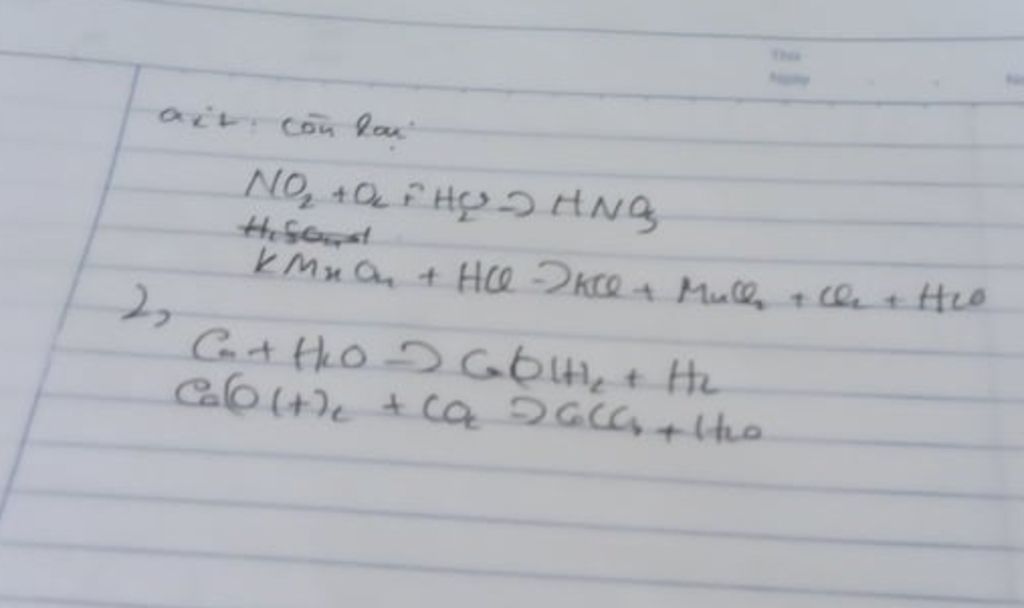 Thứ
Ngày
axit: còn lại
NO₂ + O₂ + H₂O → HNO₃
KMnO₄ + HCl → KCl + MnCl₂ + Cl₂ + H₂O
2,
Ca + H₂O → Ca(OH)₂ + H₂
Ca(OH)₂ + CO₂ → CaCO₃ + H₂O